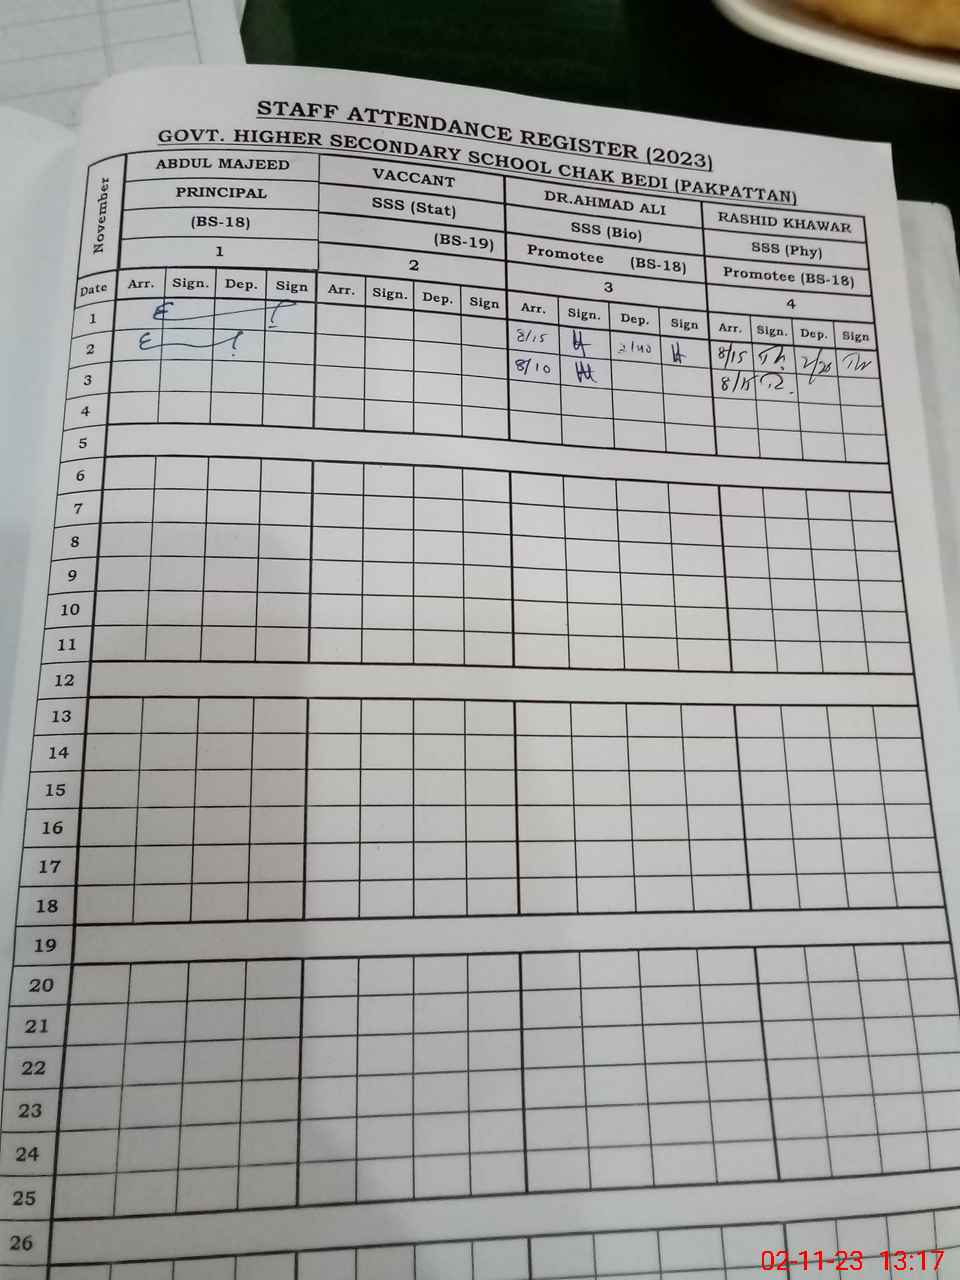 STAFF ATTENDANCE REGISTER (2023)
GOVT. HIGHER SECONDARY SCHOOL CHAK BEDI (PAKPATTAN)
November
ABDUL MAJEED
PRINCIPAL
(BS-18)
1
VACCANT
SSS (Stat)
(BS-19)
2
DR.AHMAD ALI
SSS (Bio)
Promotee (BS-18)
3
RASHID KHAWAR
SSS (Phy)
Promotee (BS-18)
4
Date Arr. Sign. Dep. Sign Arr. Sign. Dep. Sign Arr. Sign. Dep. Sign Arr. Sign. Dep. Sign
1 8/15 2/40 8/15
2 8/10 8/15
3
4
5
6
7
8
9
10
11
12
13
14
15
16
17
18
19
20
21
22
23
24
25
26
02-11-23 13:17